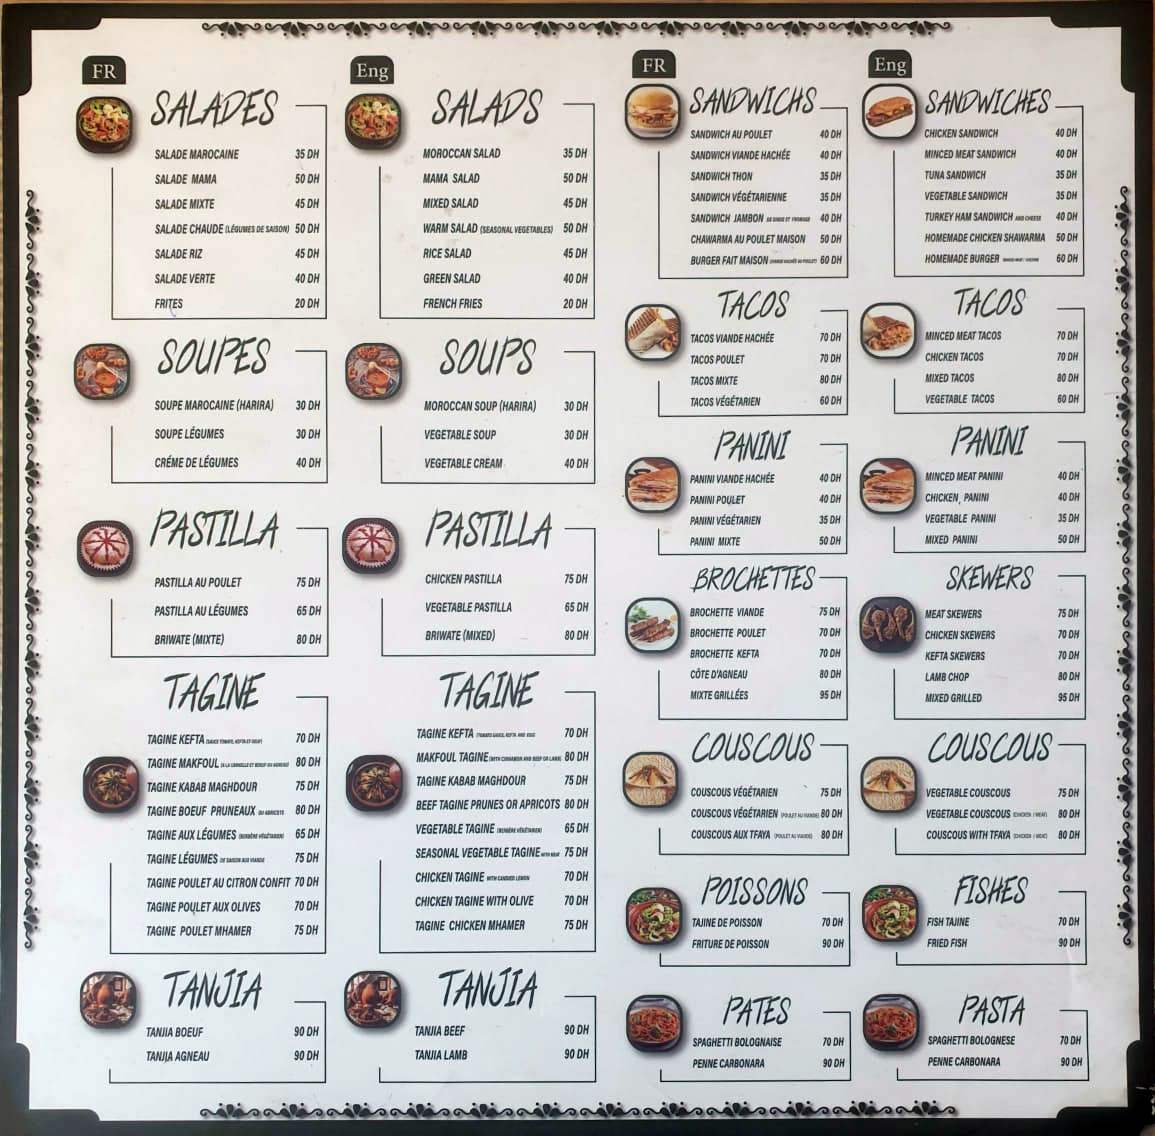 FR
SALADES
SALADE MAROCAINE 35 DH
SALADE MAMA 50 DH
SALADE MIXTE 45 DH
SALADE CHAUDE (LÉGUMES DE SAISON) 50 DH
SALADE RIZ 45 DH
SALADE VERTE 40 DH
FRITES 20 DH
SOUPES
SOUPE MAROCAINE (HARIRA) 30 DH
SOUPE LÉGUMES 30 DH
CRÉME DE LÉGUMES 40 DH
PASTILLA
PASTILLA AU POULET 75 DH
PASTILLA AU LÉGUMES 65 DH
BRIWATE (MIXTE) 80 DH
TAGINE
TAGINE KEFTA (SAUCE TOMATE, KEFTA ET OEUF) 70 DH
TAGINE MAKFOUL (A LA CANNELLE ET BOEUF OU AGNEAU) 80 DH
TAGINE KABAB MAGHDOUR 75 DH
TAGINE BOEUF PRUNEAUX OU ABRICOTS 80 DH
TAGINE AUX LÉGUMES (BERBÈRE VÉGÉTARIEN) 65 DH
TAGINE LÉGUMES DE SAISON AUX VIANDE 75 DH
TAGINE POULET AU CITRON CONFIT 70 DH
TAGINE POULET AUX OLIVES 70 DH
TAGINE POULET MHAMER 75 DH
TANJIA
TANJIA BOEUF 90 DH
TANJIA AGNEAU 90 DH
Eng
SALADS
MOROCCAN SALAD 35 DH
MAMA SALAD 50 DH
MIXED SALAD 45 DH
WARM SALAD (SEASONAL VEGETABLES) 50 DH
RICE SALAD 45 DH
GREEN SALAD 40 DH
FRENCH FRIES 20 DH
SOUPS
MOROCCAN SOUP (HARIRA) 30 DH
VEGETABLE SOUP 30 DH
VEGETABLE CREAM 40 DH
PASTILLA
CHICKEN PASTILLA 75 DH
VEGETABLE PASTILLA 65 DH
BRIWATE (MIXED) 80 DH
TAGINE
TAGINE KEFTA (TOMATO SAUCE, KEFTA AND EGG) 70 DH
MAKFOUL TAGINE (WITH CINNAMON AND BEEF OR LAMB) 80 DH
TAGINE KABAB MAGHDOUR 75 DH
BEEF TAGINE PRUNES OR APRICOTS 80 DH
VEGETABLE TAGINE (BERBÈRE VÉGÉTARIEN) 65 DH
SEASONAL VEGETABLE TAGINE WITH MEAT 75 DH
CHICKEN TAGINE WITH CANDIED LEMON 70 DH
CHICKEN TAGINE WITH OLIVE 70 DH
TAGINE CHICKEN MHAMER 75 DH
TANJIA
TANJIA BEEF 90 DH
TANJIA LAMB 90 DH
FR
SANDWICHS
SANDWICH AU POULET 40 DH
SANDWICH VIANDE HACHÉE 40 DH
SANDWICH THON 35 DH
SANDWICH VÉGÉTARIENNE 35 DH
SANDWICH JAMBON DE DINDE ET FROMAGE 40 DH
CHAWARMA AU POULET MAISON 50 DH
BURGER FAIT MAISON (VIANDE HACHÉE OU POULET) 60 DH
TACOS
TACOS VIANDE HACHÉE 70 DH
TACOS POULET 70 DH
TACOS MIXTE 80 DH
TACOS VÉGÉTARIEN 60 DH
PANINI
PANINI VIANDE HACHÉE 40 DH
PANINI POULET 40 DH
PANINI VÉGÉTARIEN 35 DH
PANINI MIXTE 50 DH
BROCHETTES
BROCHETTE VIANDE 75 DH
BROCHETTE POULET 70 DH
BROCHETTE KEFTA 70 DH
CÔTE D'AGNEAU 80 DH
MIXTE GRILLÉES 95 DH
COUSCOUS
COUSCOUS VÉGÉTARIEN 75 DH
COUSCOUS VÉGÉTARIEN (POULET AU VIANDE) 80 DH
COUSCOUS AUX TFAYA (POULET AU VIANDE) 80 DH
POISSONS
TAJINE DE POISSON 70 DH
FRITURE DE POISSON 90 DH
PATES
SPAGHETTI BOLOGNAISE 70 DH
PENNE CARBONARA 90 DH
Eng
SANDWICHES
CHICKEN SANDWICH 40 DH
MINCED MEAT SANDWICH 40 DH
TUNA SANDWICH 35 DH
VEGETABLE SANDWICH 35 DH
TURKEY HAM SANDWICH AND CHEESE 40 DH
HOMEMADE CHICKEN SHAWARMA 50 DH
HOMEMADE BURGER 60 DH
TACOS
MINCED MEAT TACOS 70 DH
CHICKEN TACOS 70 DH
MIXED TACOS 80 DH
VEGETABLE TACOS 60 DH
PANINI
MINCED MEAT PANINI 40 DH
CHICKEN PANINI 40 DH
VEGETABLE PANINI 35 DH
MIXED PANINI 50 DH
SKEWERS
MEAT SKEWERS 75 DH
CHICKEN SKEWERS 70 DH
KEFTA SKEWERS 70 DH
LAMB CHOP 80 DH
MIXED GRILLED 95 DH
COUSCOUS
VEGETABLE COUSCOUS 75 DH
VEGETABLE COUSCOUS (CHICKEN / MEAT) 80 DH
COUSCOUS WITH TFAYA (CHICKEN / MEAT) 80 DH
FISHES
FISH TAJINE 70 DH
FRIED FISH 90 DH
PASTA
SPAGHETTI BOLOGNESE 70 DH
PENNE CARBONARA 90 DH